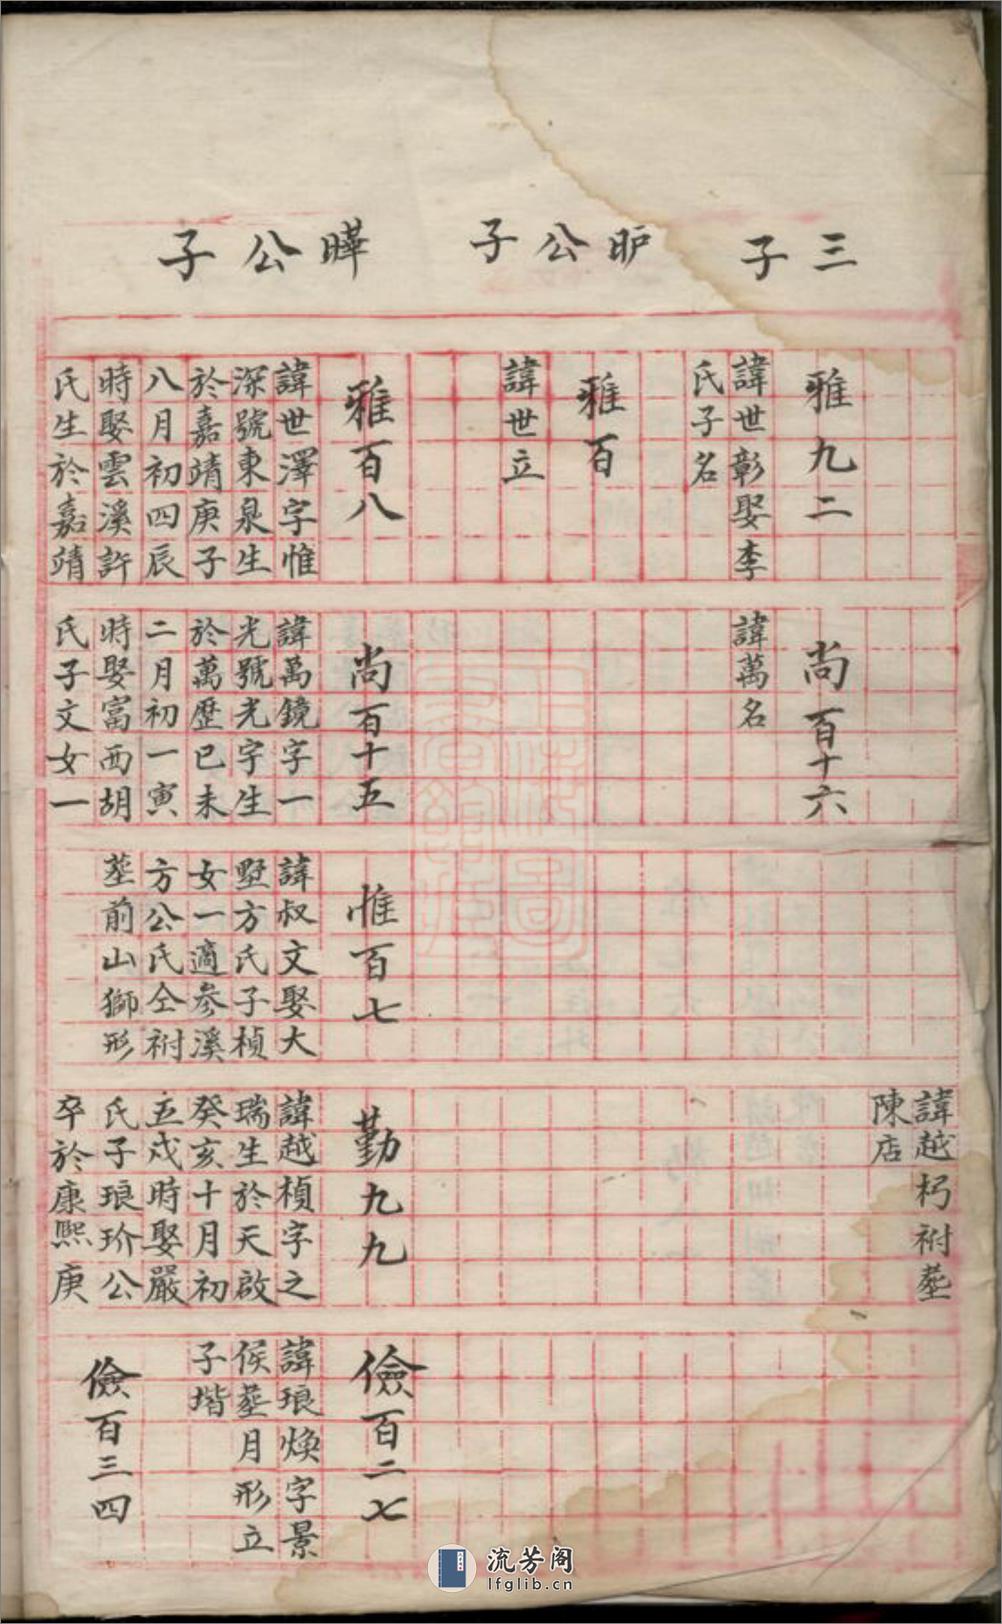 三子
昈公子
曄公子
雅九二
諱世彰娶李
氏子名
雅百
諱世立
雅百八
諱世澤字惟
深號東泉生
於嘉靖庚子
八月初四辰
時娶雲溪許
氏生於嘉靖
尚百十六
諱萬名
尚百十五
諱萬鏡字一
光號光宇生
於萬歷已未
二月初一寅
時娶富西胡
氏子文女一
惟百七
諱叔文娶大
墅方氏子楨
女一適參溪
方公氏仝祔
塟前山獅形
諱越杇祔塟
陳店
勤九九
諱越楨字之
瑞生於天啟
癸亥十月初
五戌時娶嚴
氏子琅玠公
卒於康熙庚
儉百二七
諱琅煥字景
侯塟月形立
子堦
儉百三四
流芳阁
lfglib.cn